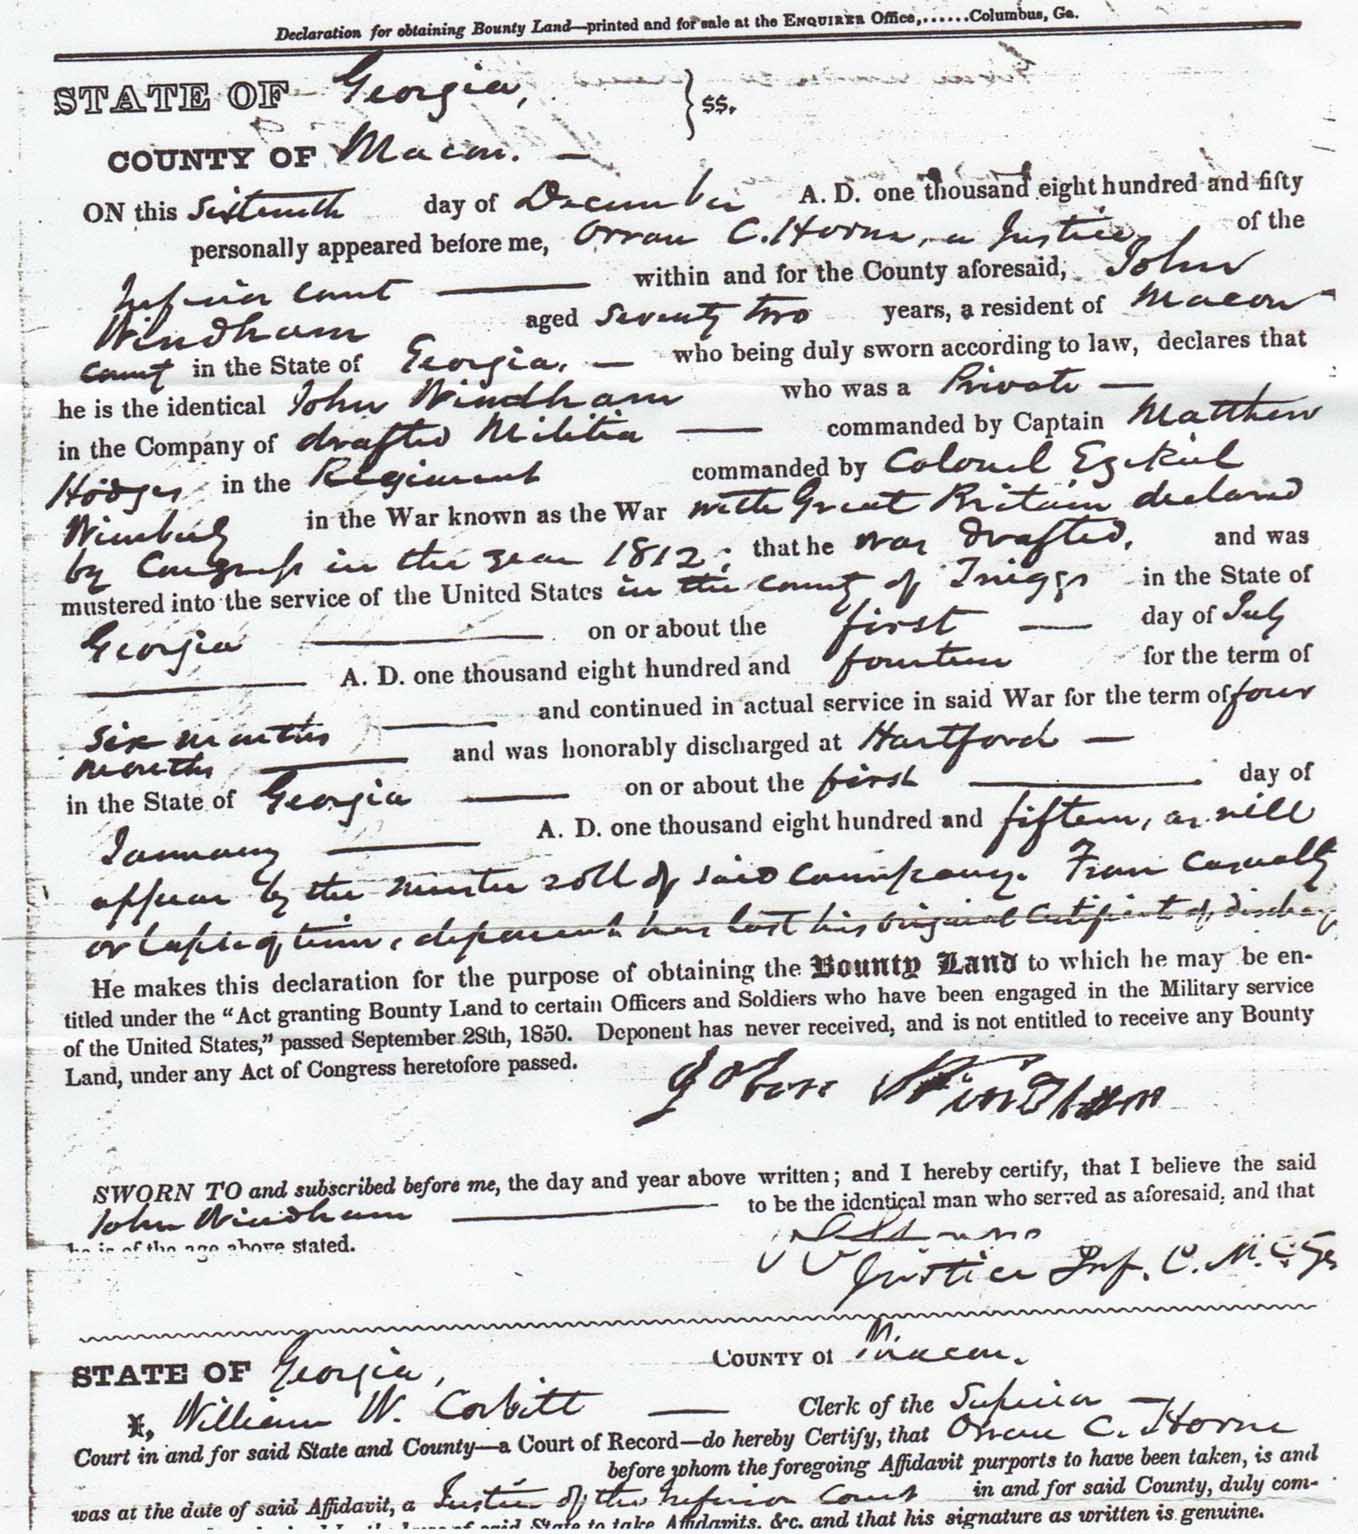 Declaration for obtaining Bounty Land—printed and for sale at the ENQUIRER Office,......Columbus, Ga.
STATE OF Georgia, } ss.
COUNTY OF Macon. —
ON this Sixteenth day of December A. D. one thousand eight hundred and fifty
personally appeared before me, Orran C. Horne, a Justice of the
Inferior Court — within and for the County aforesaid, John
Windham aged Seventy two years, a resident of Macon
County in the State of Georgia. — who being duly sworn according to law, declares that
he is the identical John Windham who was a Private —
in the Company of drafted Militia — commanded by Captain Matthew
Hodges in the Regiment commanded by Colonel Ezekiel
Wimberly in the War known as the War with Great Britain declared
by Congress in the year 1812; that he was drafted, and was
mustered into the service of the United States in the county of Twiggs in the State of
Georgia — on or about the first — day of July
— A. D. one thousand eight hundred and fourteen for the term of
Six months — and continued in actual service in said War for the term of four
months — and was honorably discharged at Hartford —
in the State of Georgia — on or about the first — day of
January — A. D. one thousand eight hundred and fifteen, as will
appear by the muster roll of said company. From Casualty
or lapse of time, deponent has lost his original Certificate of discharge
He makes this declaration for the purpose of obtaining the Bounty Land to which he may be en-
titled under the “Act granting Bounty Land to certain Officers and Soldiers who have been engaged in the Military service
of the United States,” passed September 28th, 1850. Deponent has never received, and is not entitled to receive any Bounty
Land, under any Act of Congress heretofore passed.
John Windham
SWORN TO and subscribed before me, the day and year above written; and I hereby certify, that I believe the said
John Windham — to be the identical man who served as aforesaid, and that
he is of the age above stated.
Justice Inf. C. M. C. Ga
STATE OF Georgia, COUNTY of Macon.
I, William W. Corbitt — Clerk of the Superior —
Court in and for said State and County—a Court of Record—do hereby Certify, that Orran C. Horne
before whom the foregoing Affidavit purports to have been taken, is and
was at the date of said Affidavit, a Justice of the Inferior Court in and for said County, duly com-
of said State to take Affidavits, &c. and that his signature as written is genuine.